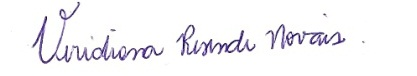 Viridiana Resende Novais.